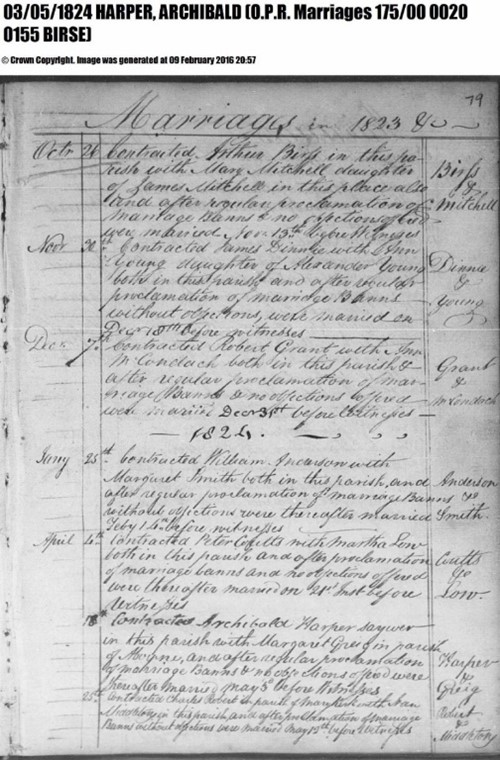 03/05/1824 HARPER, ARCHIBALD (O.P.R. Marriages 175/00 0020
0155 BIRSE)
© Crown Copyright. Image was generated at 09 February 2016 20:57
79
Marriages in 1823 &c
Octr 24 Contracted Arthur Birss in this pa-
rish with Mary Mitchell daughter Birss
of James Mitchell in this place also &
and after regular proclamation of Mitchell
marriage Banns & no objections offerd
were married Novr 13th before Witnesses
Novr 30th Contracted James Dinnie with Ann
Young daughter of Alexander Young Dinnie
both in this parish and after regular &
proclamation of marriage Banns Young
without objections, were married on
Decr 18th before witnesses
Decr 7th Contracted Robert Grant with Ann
McCondach both in this parish & Grant
after regular proclamation of mar- &
riage Banns & no objections offered McCondach
were married Decr 31st before Witnesses
1824.
Jany 25th Contracted William Anderson with
Margaret Smith both in this parish, and Anderson
after regular proclamation of marriage Banns &
without objections were thereafter married Smith.
Feby 14th before witnesses
April 4th Contracted Peter Coutts with Martha Low
both in this parish and after proclamation Coutts
of marriage banns and no objections offerd &
were thereafter married on 21st Inst before Low.
Witnesses
18th Contracted Archibald Harper sawyer
in this parish with Margaret Greig in parish
of Aboyne, and after regular proclamation Harper
of marriage Banns & no objections offerd were &
thereafter Married May 3d before Witnesses Greig
25th Contracted Charles Robert in parish of with Ann
Middleton in this parish, and after proclamation of marriage &
Banns without objections were married May 13th before Witnesses Middleton